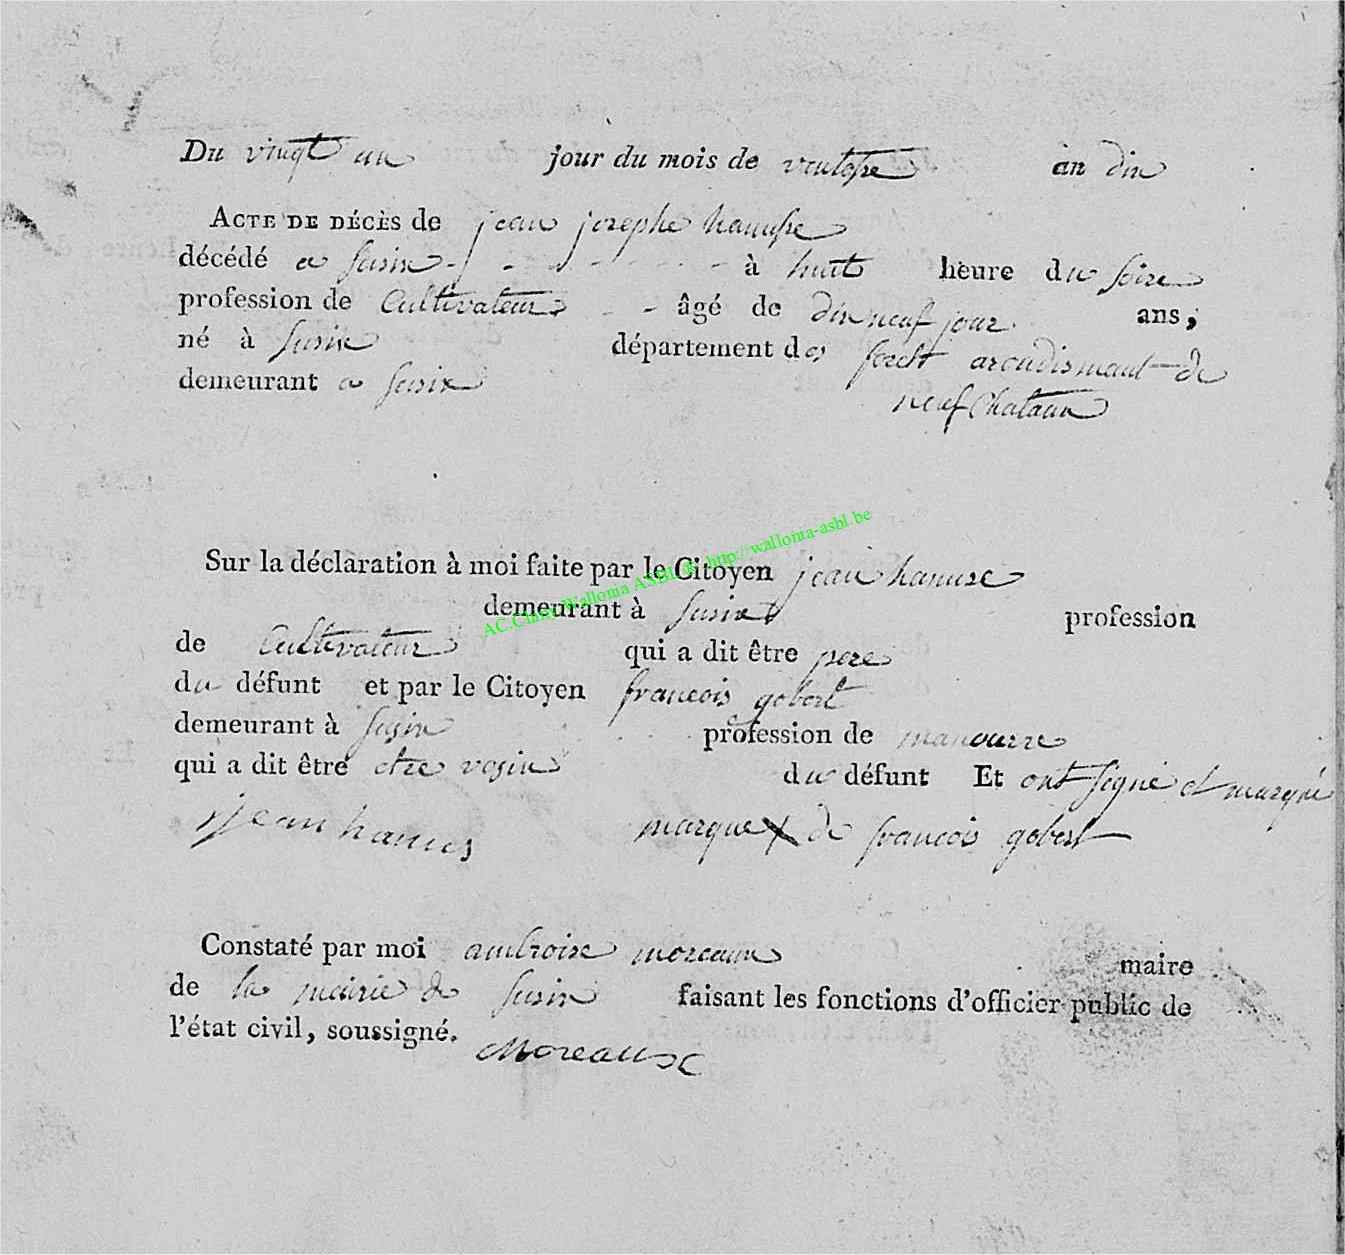 Du vingt un jour du mois de ventose an dix
ACTE DE DÉCÈS de jean josephe hanusse
décédé a Susix à huit heure du soire
profession de Cultivateur âgé de dix neuf jour ans,
né à Susix département des forest arondismant de
demeurant a Susix neufChataux
Sur la déclaration à moi faite par le Citoyen jean hanuse
demeurant à Susix profession
de Cultivateur qui a dit être pere
du défunt et par le Citoyen francois gobert
demeurant à Susix profession de manouvre
qui a dit être etre vosin du défunt Et ont signé et marqué
jean hanus marque X de francois gobert
Constaté par moi ambroise moreaux maire
de la mairie de Susix faisant les fonctions d'officier public de
l'état civil, soussigné. Moreaux
AC.Chiny Wallonia ASBL © http://wallonia-asbl.be